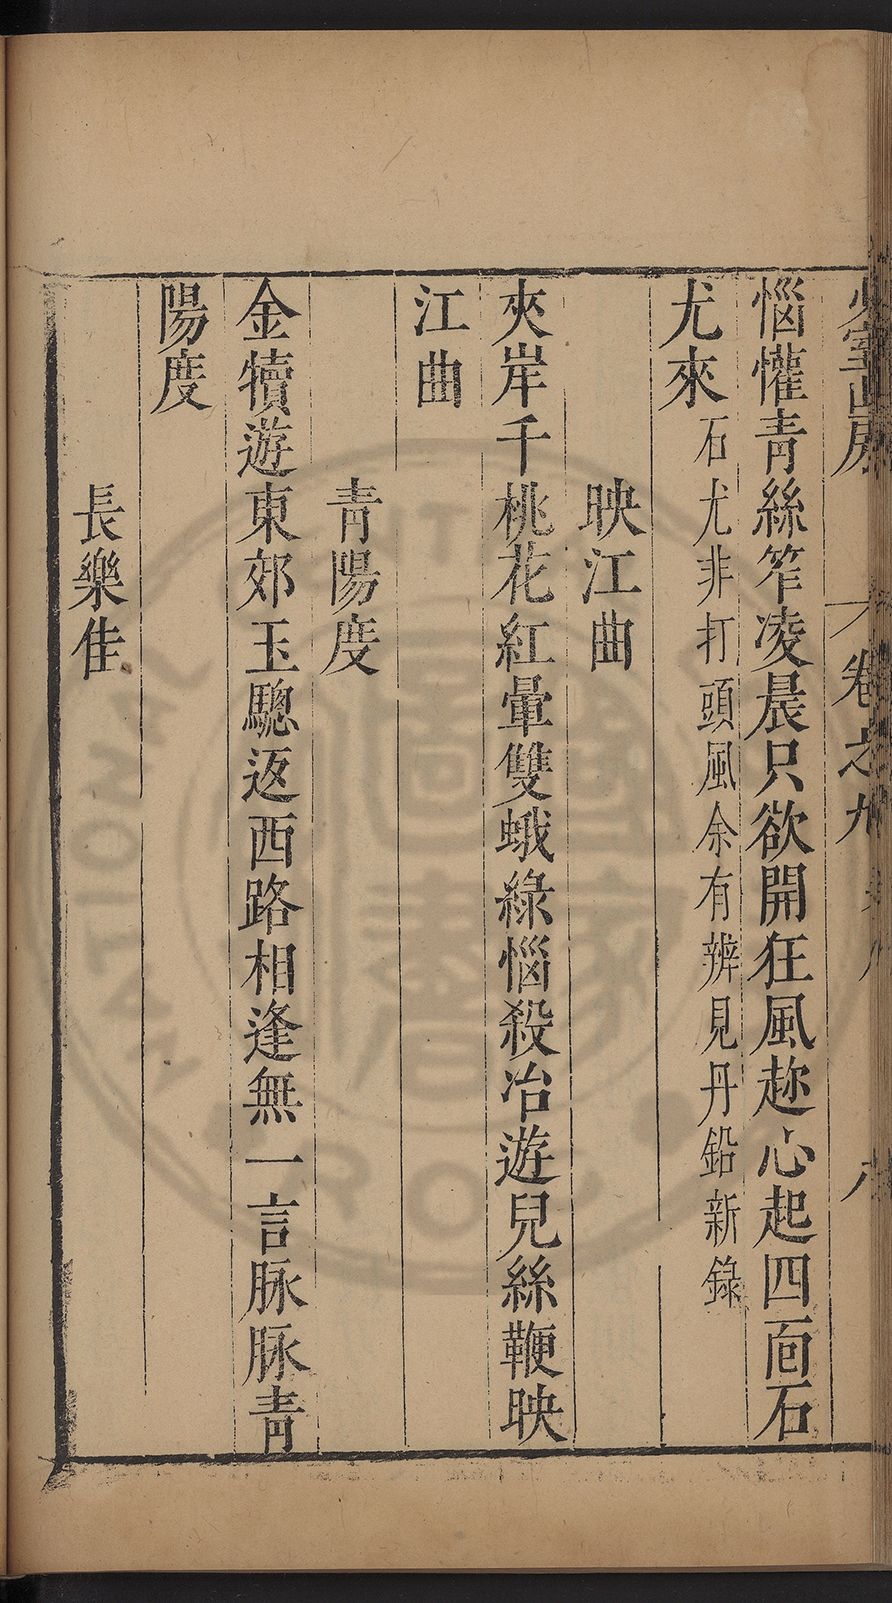 少室山房 卷之九 八
惱懽青絲笮凌晨只欲開狂風趂心起四面石
尤來石尤非打頭風余有辨見丹鉛新錄
映江曲
夾岸千桃花紅暈雙蛾綠惱殺冶遊兒絲鞭映
江曲
青陽度
金犢遊東郊玉驄返西路相逢無一言脉脉青
陽度
長樂佳